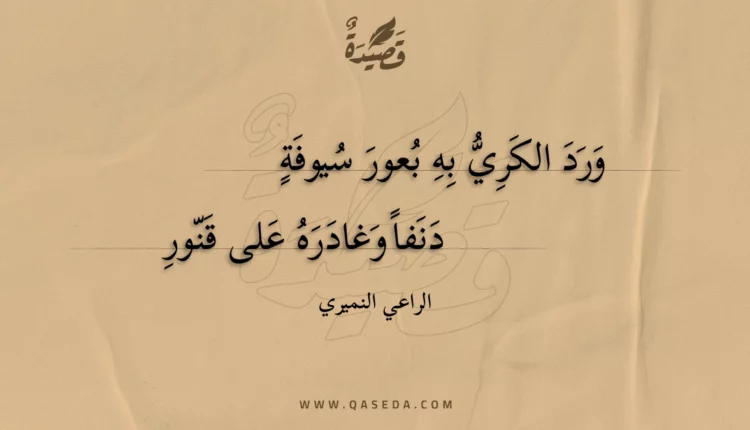 قَصِيدَةٌ
وَرَدَ الكَرِيُّ بِهِ بُعورَ سُيوفَةٍ
دَنَفاً وَغادَرَهُ عَلى قَنّورِ
الراعي النميري
WWW.QASEDA.COM